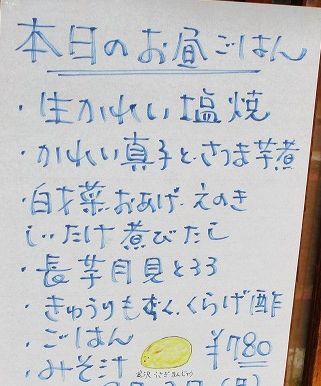 本日のお昼ごはん
・生かれい塩焼
・かれい真子と、さつま芋煮
・白才菜、おあげ、えのき
しいたけ煮びたし
・長芋月見とろろ
・きゅうりもずく、くらげ酢
・ごはん
・みそ汁
¥780
金沢 うさぎまんじゅう